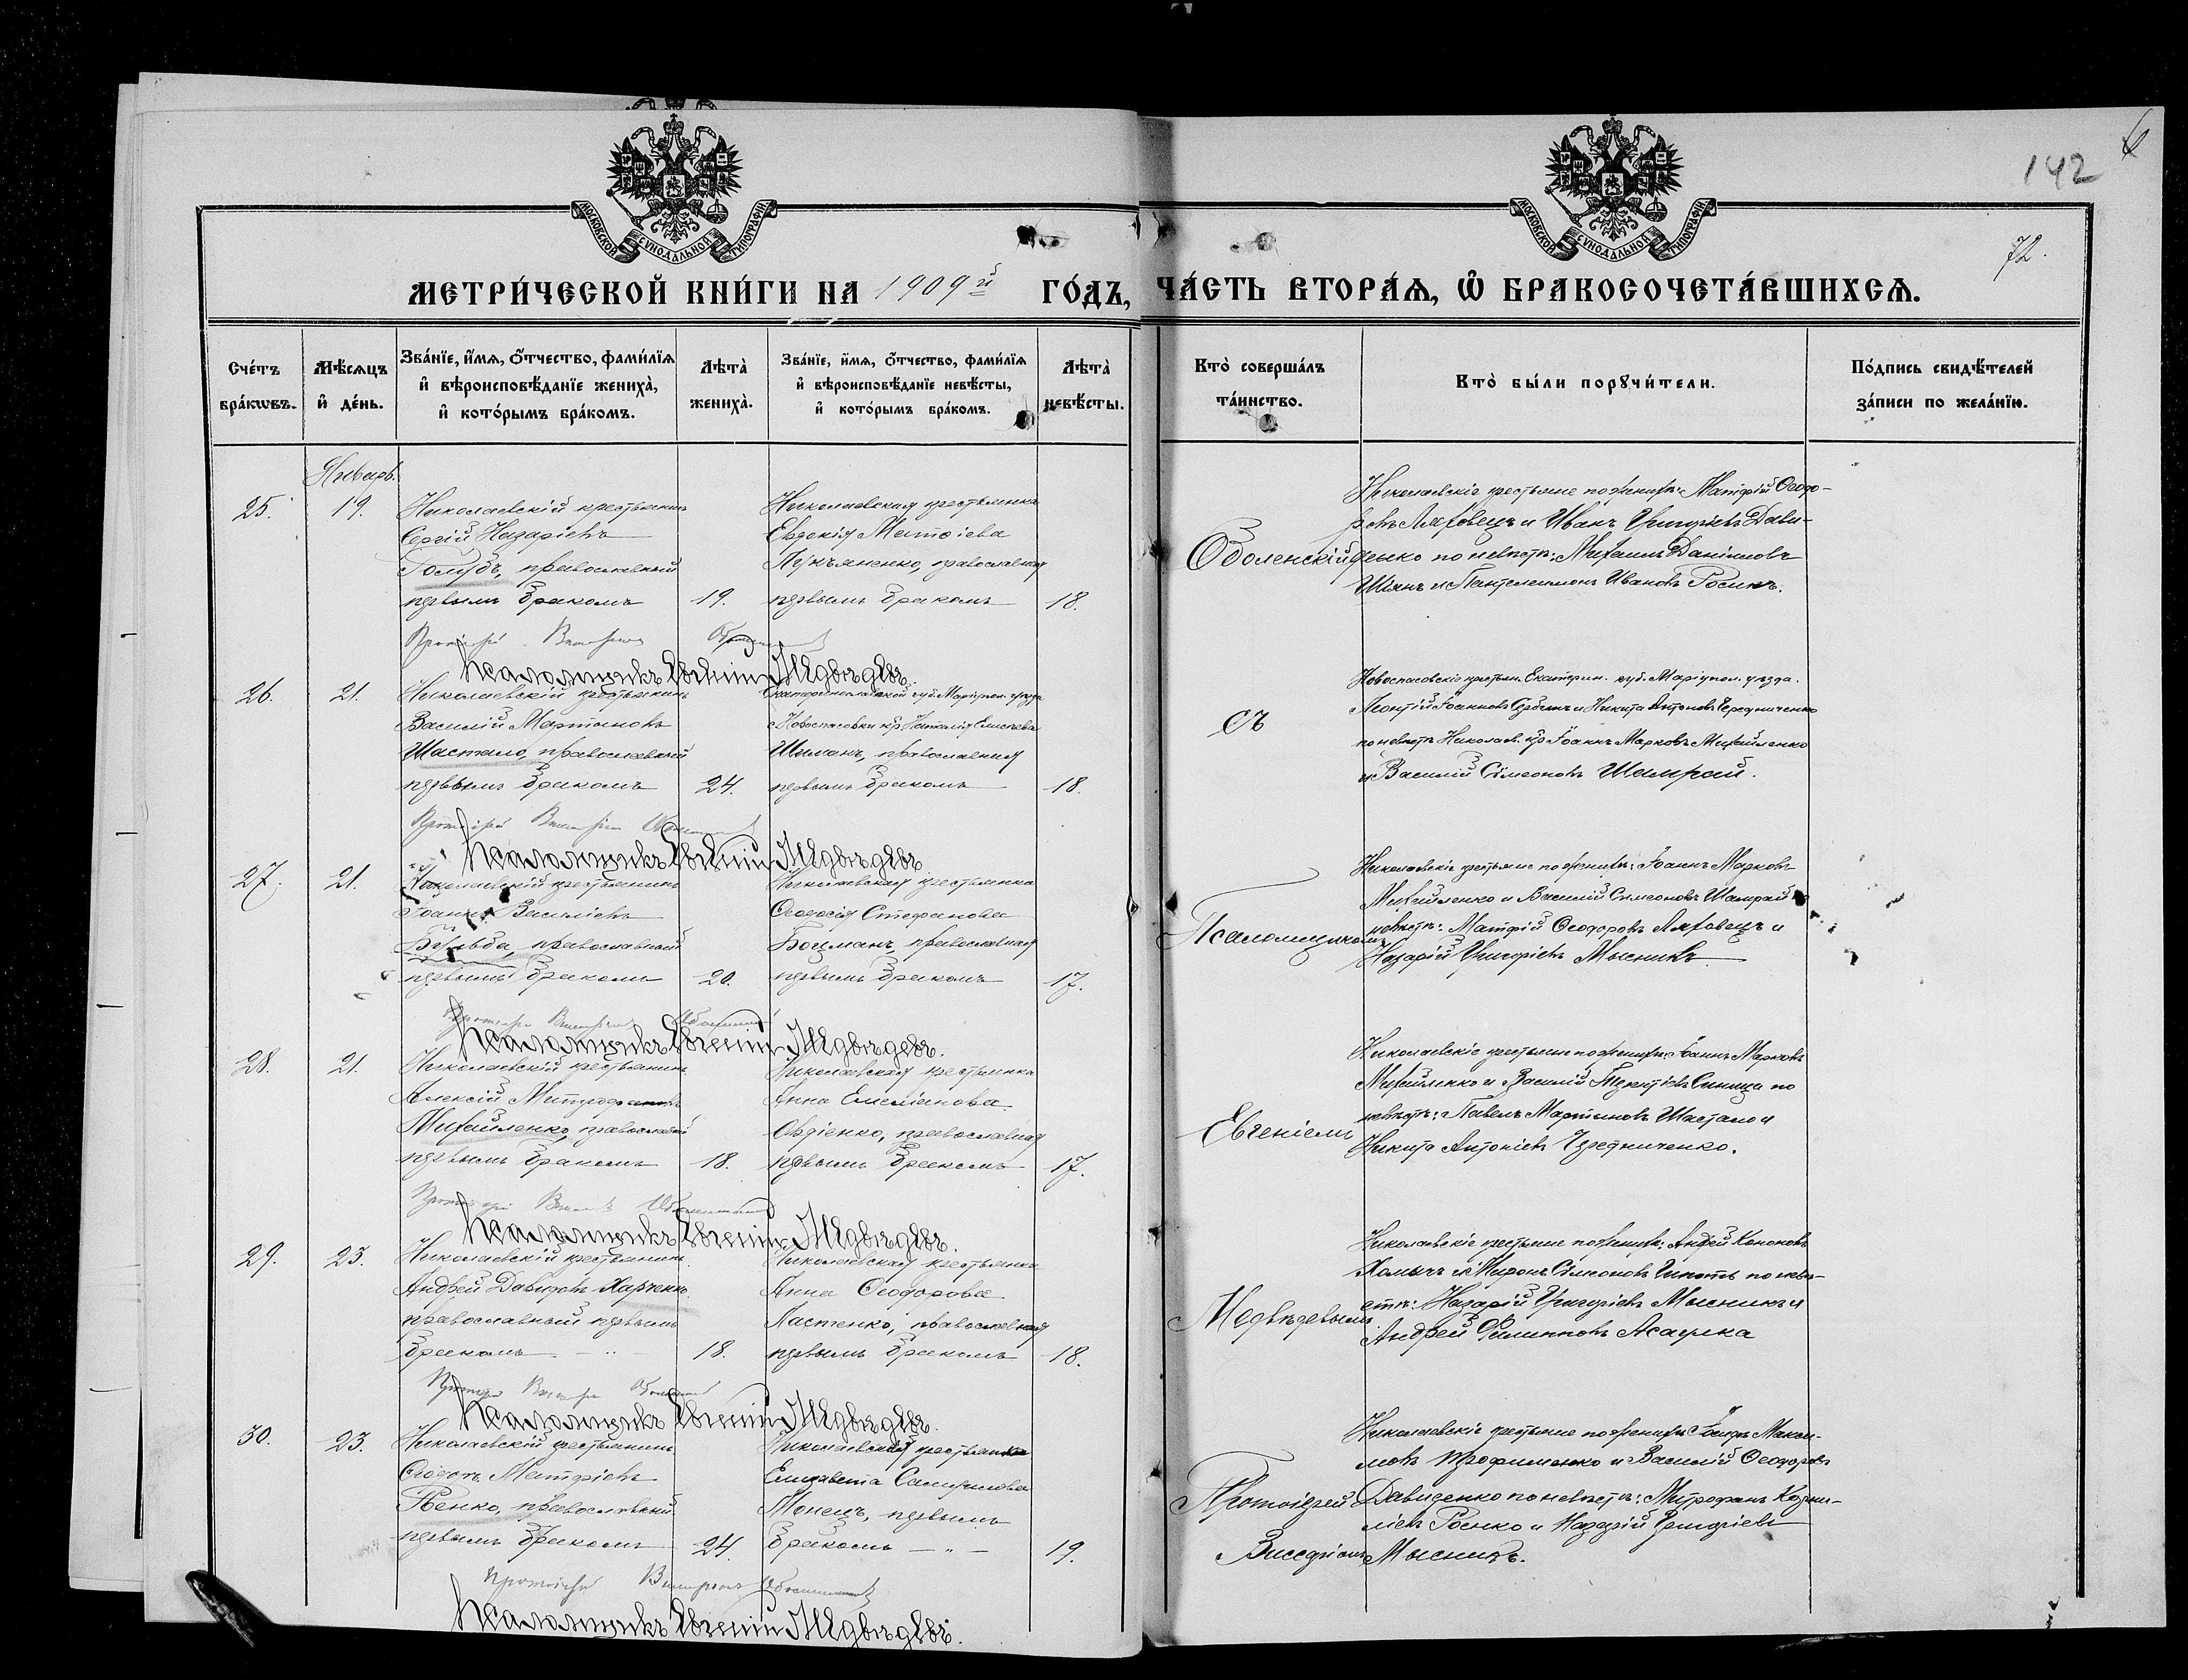 142
72.
МОСКОВСКОЙ СѴНОДАЛЬНОЙ ТИПОГРАФІИ
МОСКОВСКОЙ СѴНОДАЛЬНОЙ ТИПОГРАФІИ
МЕТРИ́ЧЕСКОЙ КНИ́ГИ НА 1909й ГО́ДЪ, ЧА́СТЬ ВТОРА́Ѧ, Ѽ БРАКОСОЧЕТА́ВШИХСѦ.
Сче́тъ бра́кѡвъ.
Мѣ́сѧцъ и҆ де́нь.
Зва́нїе, и҆́мѧ, ѻ҆́тчество, фами́лїѧ и҆ вѣроисповѣ́данїе жениха̀, и҆ кото́рымъ бра́комъ.
Лѣта̀ жениха̀.
Зва́нїе, и҆́мѧ, ѻ҆́тчество, фами́лїѧ и҆ вѣроисповѣ́данїе невѣ́сты, и҆ кото́рымъ бра́комъ.
Лѣта̀ невѣ́сты.
Кто̀ соверша́лъ та́инство.
Кто̀ бы́ли порꙋчи́тели.
По́дпись свидѣ́телей за́писи по жела́нїю.
Январь.
25. 19.
Николаевскій крестьянинъ
Сергій Назаріевъ
Голубъ, православный
первымъ бракомъ 19.
Николаевская крестьянка
Евдокія Матѳіева
Лукьяненко, православная
первымъ бракомъ 18.
Николаевскіе крестьяне по женихѣ: Матфій Ѳеодо-
ровъ Ляховецъ и Иванъ Григоріевъ Дави-
денко по невѣстѣ: Михаилъ Даніиловъ
Шіянъ и Пантелеимонъ Ивановъ Росинъ.
Протоіерей Виссаріонъ Оболенскій
Псаломщикъ Евгеній Медвѣдевъ.
26. 21.
Николаевскій крестьянинъ
Василій Мартыновъ
Шастало, православный
первымъ бракомъ 24.
Екатеринославской губ. Маріупол. уѣзда
с. Новоспасовки кр. Наталія Елисѣева
Шиманъ, православная
первымъ бракомъ 18.
Новоспасовскіе крестьян. Екатерин. губ. Маріупол. уѣзда.
Леонтій Іоанновъ и Никита Антоновъ Чередниченко
по невѣстѣ Николаев. кр. Іоаннъ Марковъ Михайленко
и Василій Симеоновъ Шамрай.
Протоіерей Виссаріонъ Оболенскій
Псаломщикъ Евгеній Медвѣдевъ
27. 21.
Николаевскій крестьянинъ
Іоаннъ Василіевъ
Бульба, православный
первымъ бракомъ 20.
Николаевская крестьянка
Ѳеодосія Стефанова
Боцманъ, православная
первымъ бракомъ 17.
Николаевскіе крестьяне по женихѣ: Іоаннъ Марковъ
Михайленко и Василій Симеоновъ Шамрай по
невѣстѣ: Матфій Ѳеодоровъ Ляховецъ и
Назарій Григоріевъ Мысникъ
Протоіерей Виссаріонъ Оболенскій
Псаломщикъ Евгеній Медвѣдевъ.
28. 21.
Николаевскій крестьянинъ
Алексій Митрофановъ
Михайленко, православный
первымъ бракомъ 18.
Николаевская крестьянка
Анна Емеліанова
Овдіенко, православная
первымъ бракомъ 17.
Николаевскіе крестьяне по женихѣ: Іоаннъ Марковъ
Михайленко и Василій Терентіевъ Синица по
невѣстѣ: Павелъ Мартыновъ Шастало и
Никита Антоніевъ Чередниченко.
Протоіерей Виссаріонъ Оболенскій
Псаломщикъ Евгеній Медвѣдевъ.
29. 23.
Николаевскій крестьянинъ
Андрей Давидовъ Харченко
православный первымъ
бракомъ 18.
Николаевская крестьянка
Анна Ѳеодорова
Ластенко, православная
первымъ бракомъ 18.
Николаевскіе крестьяне по женихѣ: Андрей Кононовъ
Хомычъ и Миронъ Симеоновъ по невѣ-
стѣ: Назарій Григоріевъ Мысникъ и
Андрей Филипповъ Асаулка
Протоіерей Виссаріонъ Оболенскій
Псаломщикъ Евгеній Медвѣдевъ.
30. 23.
Николаевскій крестьянинъ
Ѳеодотъ Матфіевъ
Роенко, православный
первымъ бракомъ 24.
Николаевская крестьянка
Елизавета Самуилова
Монецъ, первымъ
бракомъ 19.
Николаевскіе крестьяне по женихѣ Макси-
мовъ Трофименко и Василій Ѳеодоровъ
Давиденко по невѣстѣ: Митрофанъ Корни-
ліевъ Роенко и Назарій Григоріевъ
Мысникъ.
Протоіерей Виссаріонъ Оболенскій
Псаломщикъ Евгеній Медвѣдевъ.
Протоіерей
Виссаріонъ
Оболенскій
съ
Псаломщикомъ
Евгеніемъ
Медвѣдевымъ